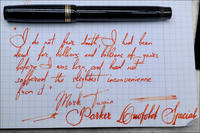 "I do not fear death. I had been
dead for billions and billions of years
before I was born, and had not
suffered the slightest inconvenience
from it."
Mark Twain
Parker Duofold Special